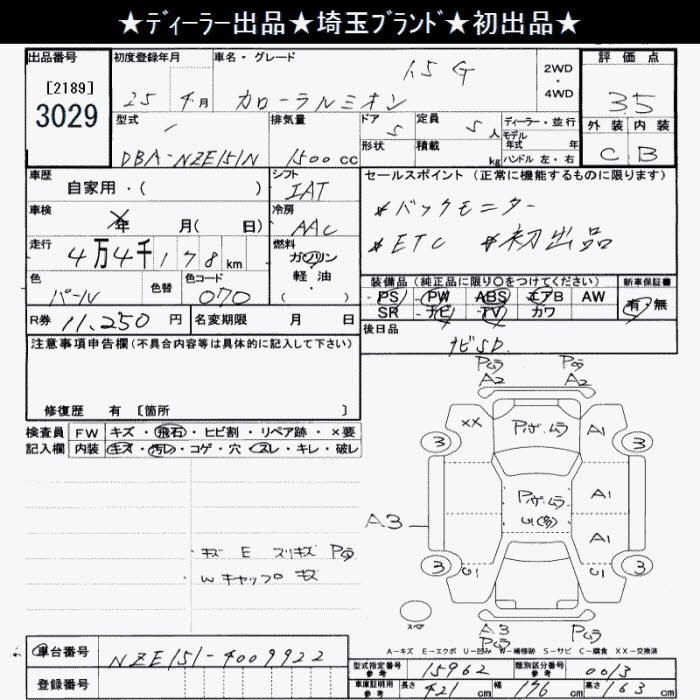 ★ディーラー出品★埼玉ブランド★初出品★
出品番号
[2189]
3029
初度登録年月
25 4月
車名・グレード
1.5 G
カローラルミオン
2WD
・
4WD
評価点
3.5
外装 内装
C B
型式
DBA-NZE151N
排気量
1500 cc
ドア
5
形状
定員
5 人
積載
kg
ディーラー・並行
モデル
年式 年
ハンドル 左・右
車歴
自家用・( )
シフト
IAT
セールスポイント (正常に機能するものに限ります)
*バックモニター
*ETC *初出品
車検
年 月( 日)
冷房
AAC
走行
4万4千178km
燃料
ガソリン
軽・油
( ・ )
色
パール
色替
色コード
070
装備品 (純正品に限り○をつけてください)
PS PW ABS エアB AW
SR ナビ TV カワ
新車保証書
有・無
R券 11,250 円
名変期限 月 日
後日品
ナビSD.
注意事項申告欄(不具合内容等は具体的に記入して下さい)
修復歴 有 〔箇所 〕
検査員
記入欄
FW キズ・飛石・ヒビ割・リペア跡・×要
内装 キズ・汚レ・コゲ・穴・スレ・キレ・破レ
Pムラ
A2
Pムラ
A2
XX
Pボ.ムラ
A1
3
3
Pボ.ムラ
U1(多)
A1
A3
A1
3
U1
U1
3
キズ E スリキズ Pムラ
Wキャップ キズ
スペア
A3
Pムラ
Pムラ
A-キズ E-エクボ U-凹み W-補修跡 S-サビ C-腐食 XX-交換済
車台番号
NZE151-4009922
登録番号
型式指定番号
参考
15962
類別区分番号
参考
0013
車庫証明用
参考
長さ
421 cm
幅
176 cm
高さ
163 cm